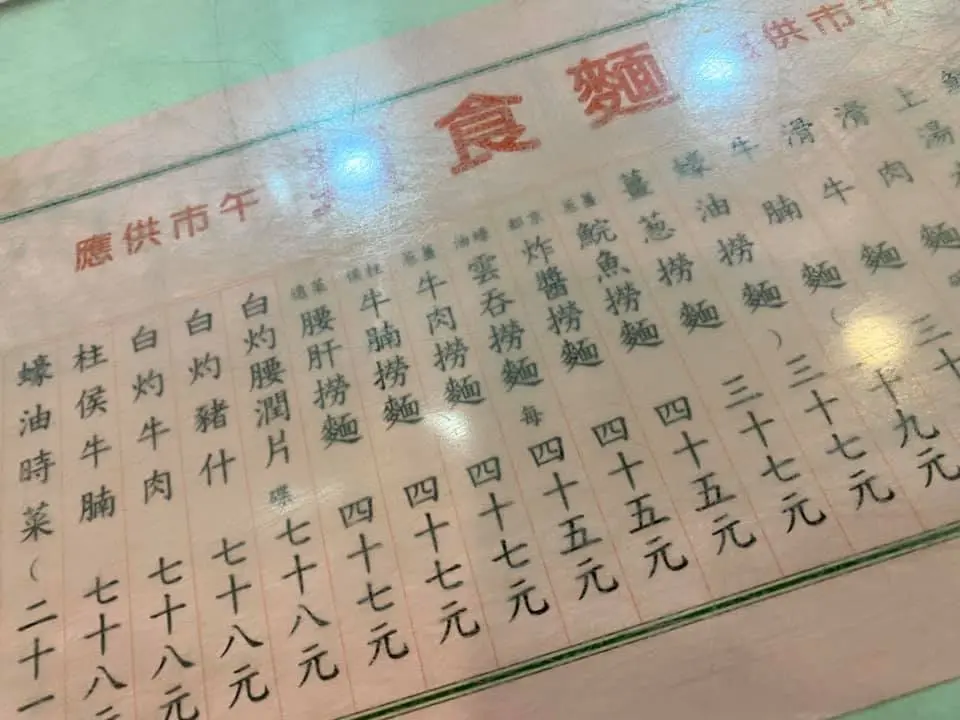 午市供
麵食
午市供應
滑肉麵
滑牛麵 三十
牛腩麵（ 十九元
蠔油撈麵 ） 三十七元
薑葱撈麵 三十七元
薑葱 鯇魚撈麵 四十五元
京都 炸醬撈麵 四十五元
蠔油 雲吞撈麵 每 四十五元
薑葱 牛肉撈麵 四十七元
柱侯 牛腩撈麵 四十七元
菜遠 腰肝撈麵 四十七元
白灼腰潤片 碟 七十八元
白灼豬什 七十八元
白灼牛肉 七十八元
柱侯牛腩 七十八元
蠔油時菜（二十一